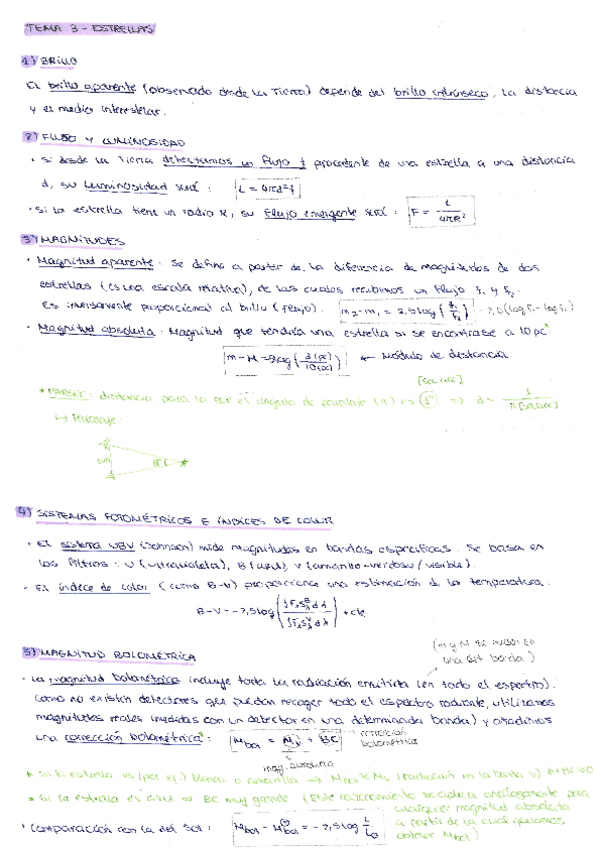 TEMA 3 - ESTRELLAS
1) BRILLO
El brillo aparente (observado desde la Tierra) depende del brillo intrínseco, la distancia
y el medio interestelar.
2) FLUJO Y LUMINOSIDAD
· Si desde la Tierra detectamos un flujo f procedente de una estrella a una distancia
d, su luminosidad será : L = 4πd²f
· Si la estrella tiene un radio R, su flujo emergente será : F = L / 4πR²
3) MAGNITUDES
· Magnitud aparente : Se define a partir de la diferencia de magnitudes de dos
estrellas (es una escala relativa), de las cuales recibimos un flujo f₁ y f₂.
Es inversamente proporcional al brillo (flujo). m₂-m₁ = 2,5 log (f₁/f₂)
· Magnitud absoluta : Magnitud que tendría una estrella si se encontrase a 10 pc*
m - M = 5 log (d(pc)/10(pc)) ← Módulo de distancia
[sec arc]
* PARSEC : distancia para la que el ángulo de paralaje (π) es 1" ⇒ d = 1 / π[sec arc]
↳ Paralaje:
4) SISTEMAS FOTOMÉTRICOS E ÍNDICES DE COLOR
· El sistema UBV (Johnson) mide magnitudes en bandas específicas. Se basa en
los filtros : U (ultravioleta), B (azul), V (amarillo-verdoso / visible).
· El índice de color (como B-V) proporciona una estimación de la temperatura :
B-V = -2,5 log + cte
(m y M se miden en
una det. banda)
5) MAGNITUD BOLOMÉTRICA
· La magnitud bolométrica incluye toda la radiación emitida (en todo el espectro).
Como no existen detectores que puedan recoger todo el espectro radiante, utilizamos
magnitudes reales (medidas con un detector en una determinada banda) y añadimos
una corrección bolométrica* : M_bol = M_V + BC → corrección
bolométrica
mag. absoluta
* Si la estrella es (por ej.) blanca o amarilla → M_bol ≈ M_V (radiación en la banda V)
* Si la estrella es → BC muy grande (Este razonamiento se aplica análogamente para
cualquier magnitud absoluta
a partir de la cual queramos
obtener M_bol)
· Comparación con la del Sol : M_bol - M_bol^☉ = -2,5 log L/L☉